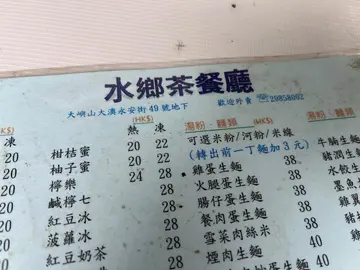 水鄉茶餐廳
大嶼山大澳永安街49號地下 歡迎外賣 ☎29858062
(HK$) 熱 (HK$) 凍 湯粉、麵類 (HK$) 湯粉、麵類
凍 可選米粉/河粉/米線 牛腩生麵
20 柑桔蜜 20 22 (轉出前一丁麵加3元)
20 柚子蜜 22 22 雞蛋生麵 38
20 檸樂 24 24 火腿蛋生麵 38
20 鹹檸七 28 腸仔蛋生麵 38
20 紅豆冰 28 餐肉蛋生麵 38
菠蘿冰 28 雪菜肉絲米 40
紅豆奶茶 28 煙肉生麵 38